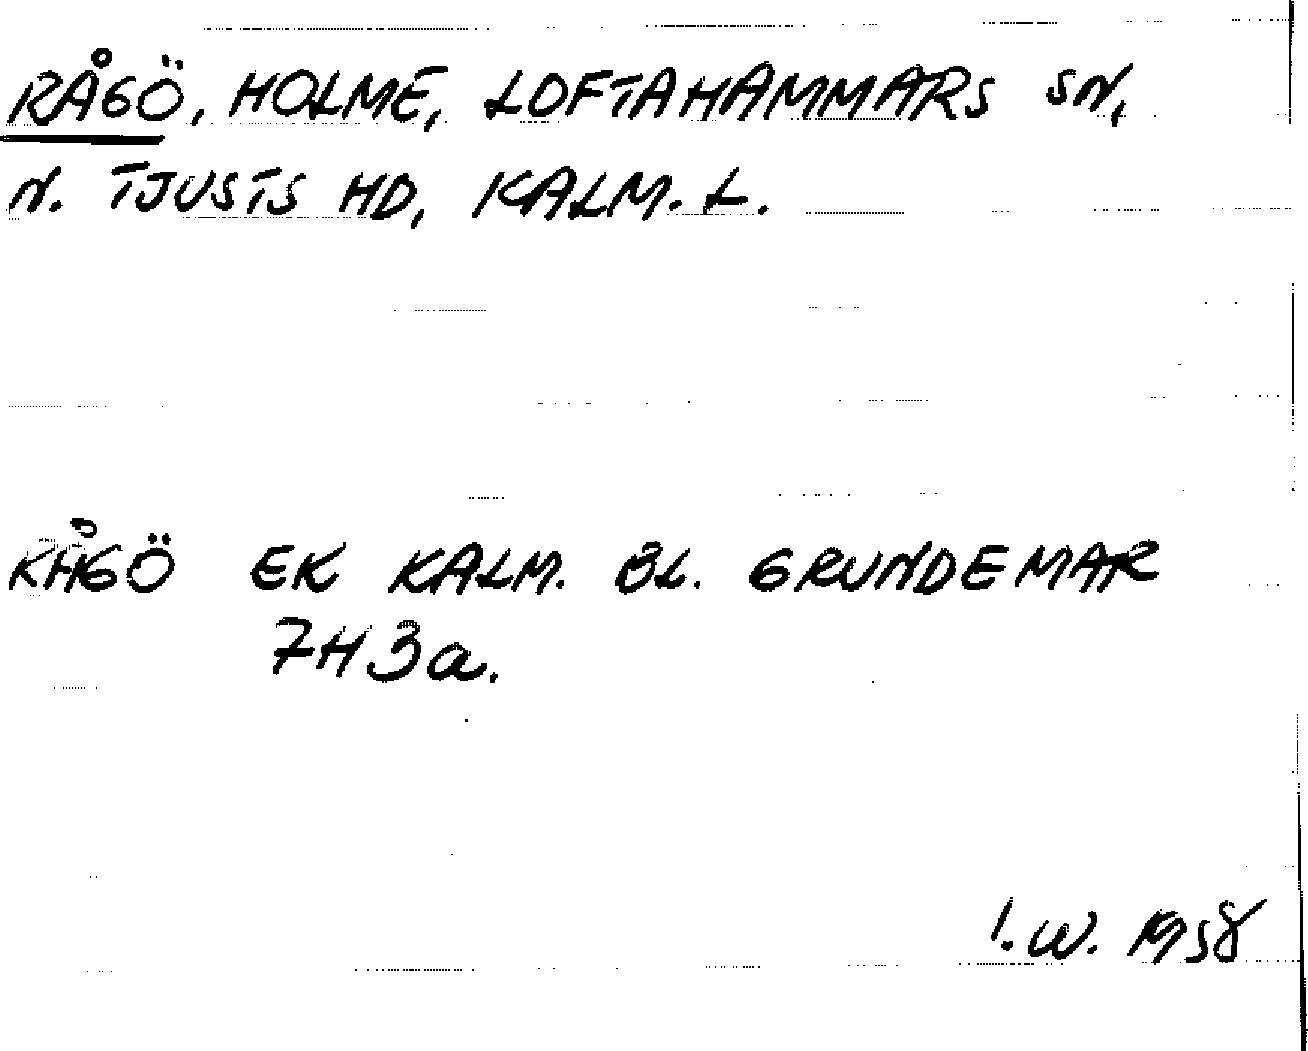 RÅGÖ, HOLME, LOFTAHAMMARS SN,
N. TJUSTS HD, KALM. L.
RÅGÖ EK KALM. BL. GRUNDEMAR
7H3a.
I.W. 1958